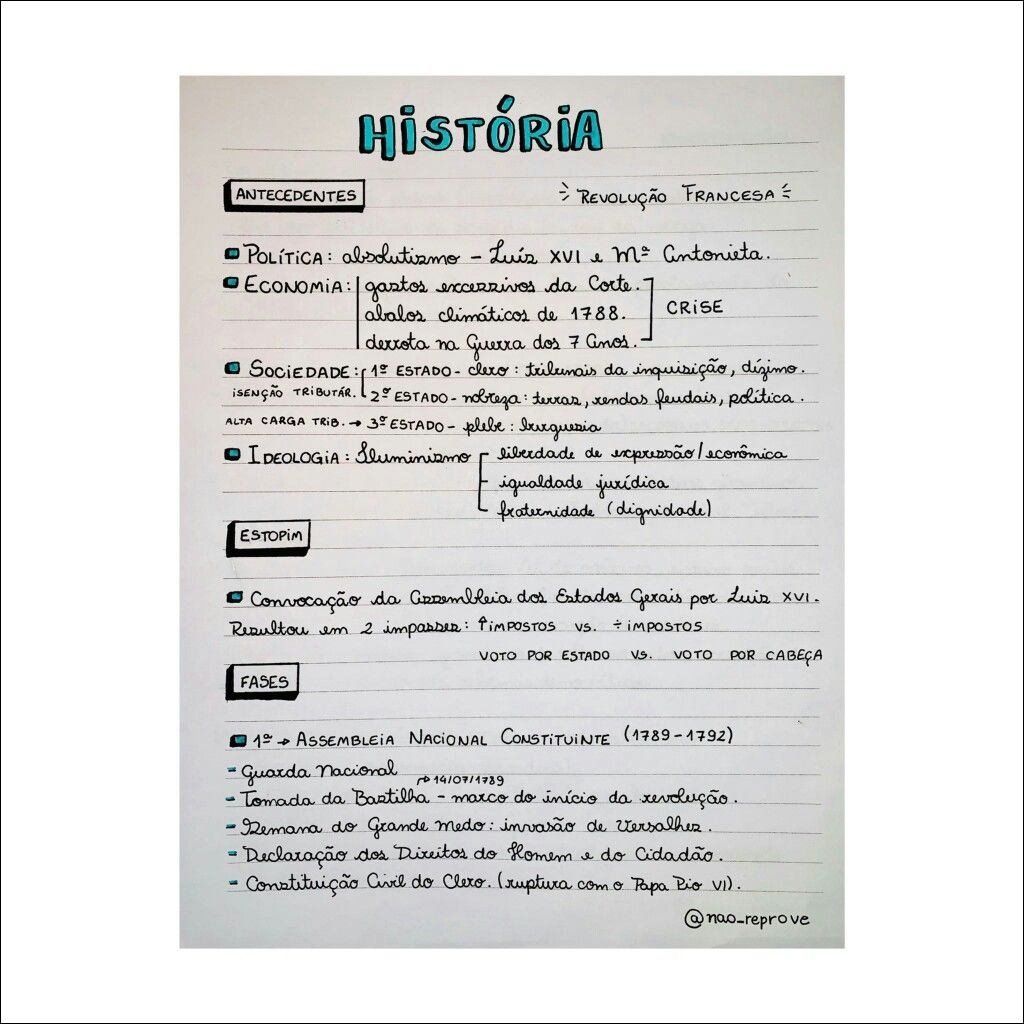 HISTÓRIA
ANTECEDENTES
REVOLUÇÃO FRANCESA
POLÍTICA: absolutismo - Luís XVI e Mª Antonieta.
ECONOMIA: gastos excessivos da Corte.
abalos climáticos de 1788. CRISE
derrota na Guerra dos 7 Anos.
SOCIEDADE: 1º ESTADO - clero: tribunais da inquisição, dízimo.
ISENÇÃO TRIBUTÁR. 2º ESTADO - nobreza: terras, rendas feudais, política.
ALTA CARGA TRIB. → 3º ESTADO - plebe: burguesia
IDEOLOGIA: Iluminismo - liberdade de expressão/econômica
- igualdade jurídica
- fraternidade (dignidade)
ESTOPIM
Convocação da Assembleia dos Estados Gerais por Luís XVI.
Resultou em 2 impasses: ↑IMPOSTOS VS. ÷ IMPOSTOS
VOTO POR ESTADO VS. VOTO POR CABEÇA
FASES
1ª → ASSEMBLEIA NACIONAL CONSTITUINTE (1789-1792)
- Guarda Nacional
→ 14/07/1789
- Tomada da Bastilha - marco do início da revolução.
- Semana do Grande Medo: invasão de Versalhes.
- Declaração dos Direitos do Homem e do Cidadão.
- Constituição Civil do Clero. (ruptura com o Papa Pio VI).
@nao_reprove